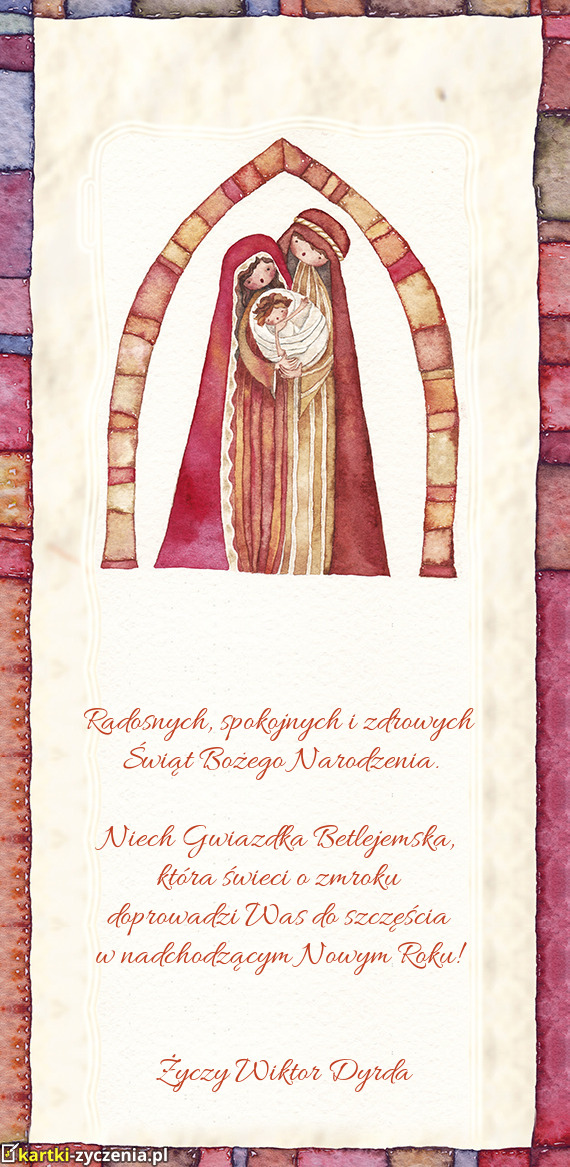 Radosnych, spokojnych i zdrowych
Świąt Bożego Narodzenia.
Niech Gwiazdka Betlejemska,
która świeci o zmroku
doprowadzi Was do szczęścia
w nadchodzącym Nowym Roku!
Życzy Wiktor Dyrda
kartki-zyczenia.pl